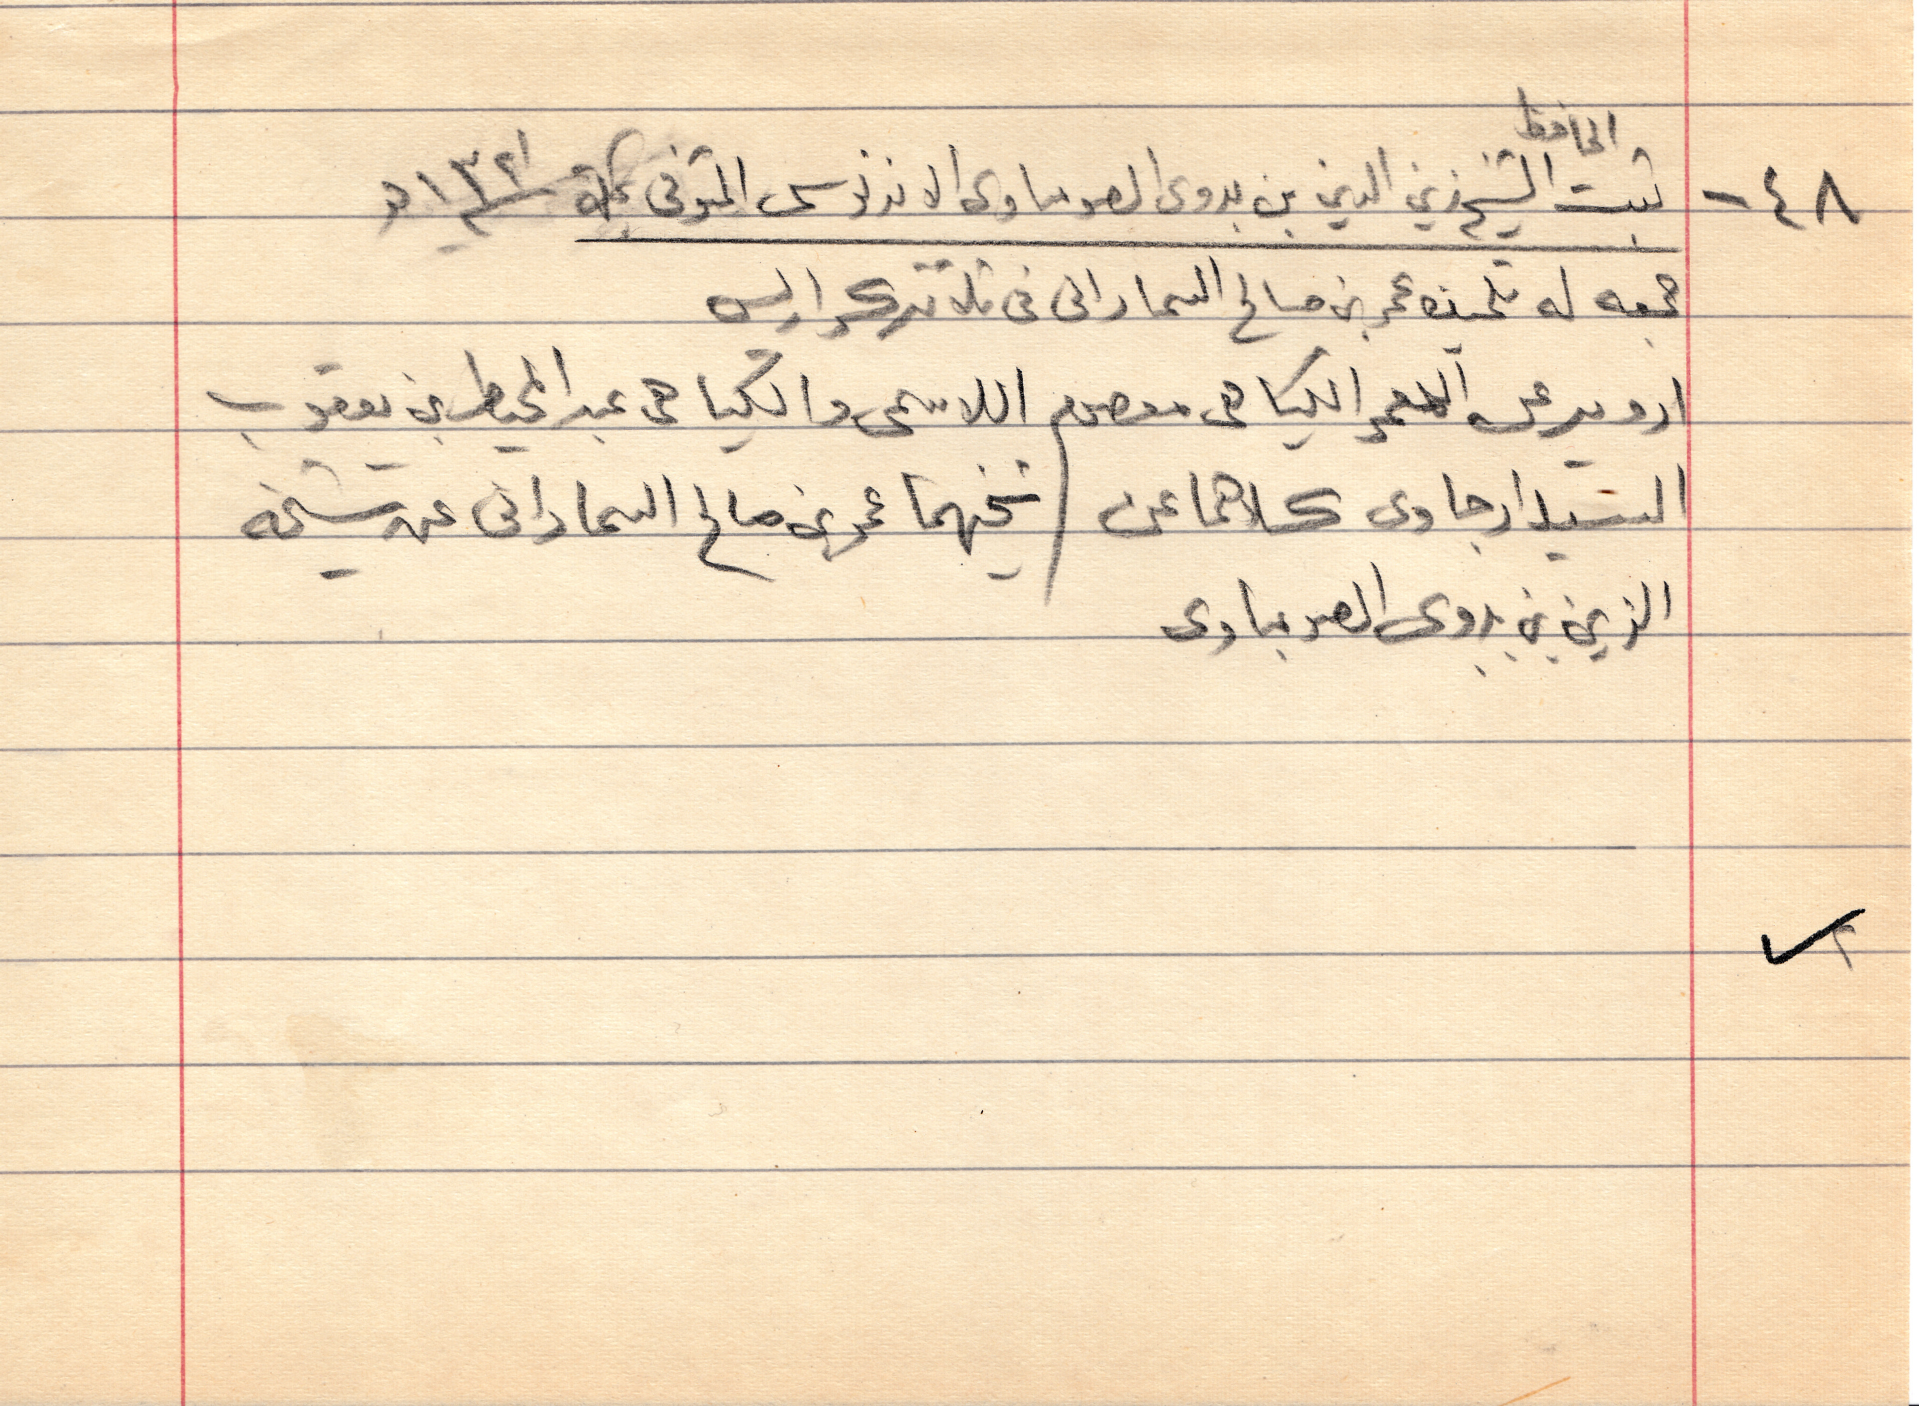 الحافظ
٤٨ - ثبت الشيخ زين الدين بن بدوى الصومباوى الاندنوسى المتوفى بمكة سنة ١٣٢١ هـ
جمعه له تلميذه عمر بن صالح السمارانى فى ثلاثة كراريس
ارويه عن المعمر الكياهى معصوم اللاسمى والكياهى عبد المحيط بن يعقوب
السيدارجاوى كلاهما عن شيخهما عمر بن صالح السمارانى عن شيخه
الزين بن بدوى الصومباوى